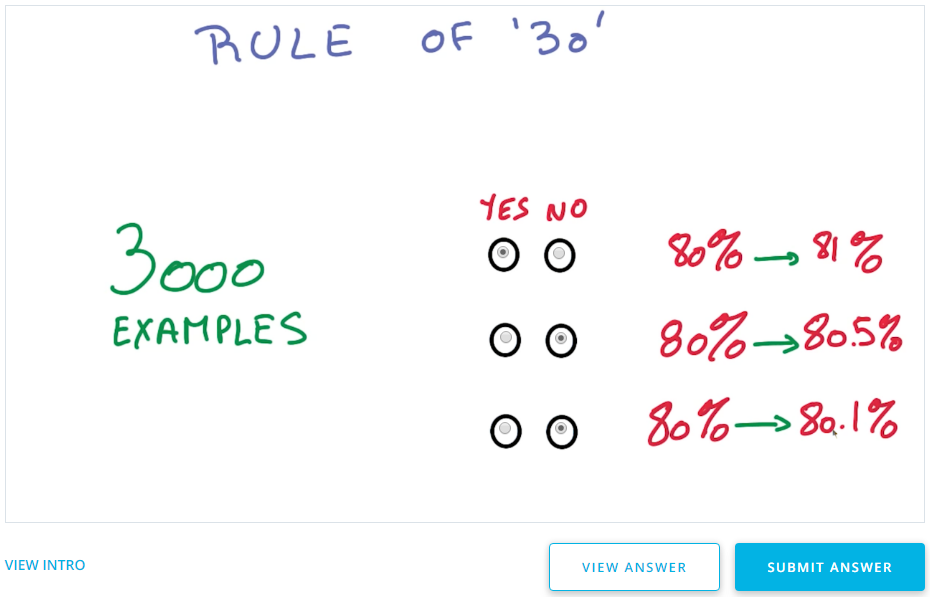 RULE OF '30'
YES NO
3000
EXAMPLES
80% → 81%
80% → 80.5%
80% → 80.1%
VIEW INTRO
VIEW ANSWER
SUBMIT ANSWER